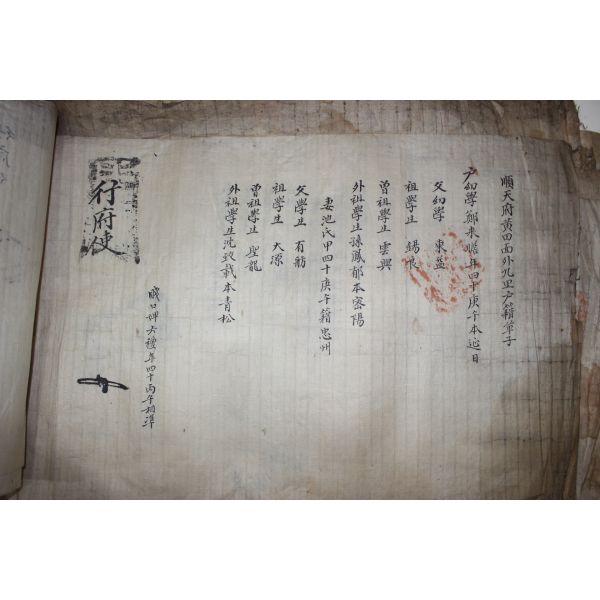 順天府黃田面外九里戶籍單子
戶幼學鄭來 年四十庚午本延日
父幼學 東益
祖學生 錫
曾祖學生 雲興
外祖學生 鳳郁本密陽
妻池氏甲四十庚午籍忠州
父學生 有舫
祖學生 大源
曾祖學生 聖龍
外祖學生沈致載本靑松
賤口婢 禮年四十丙午相準
行府使